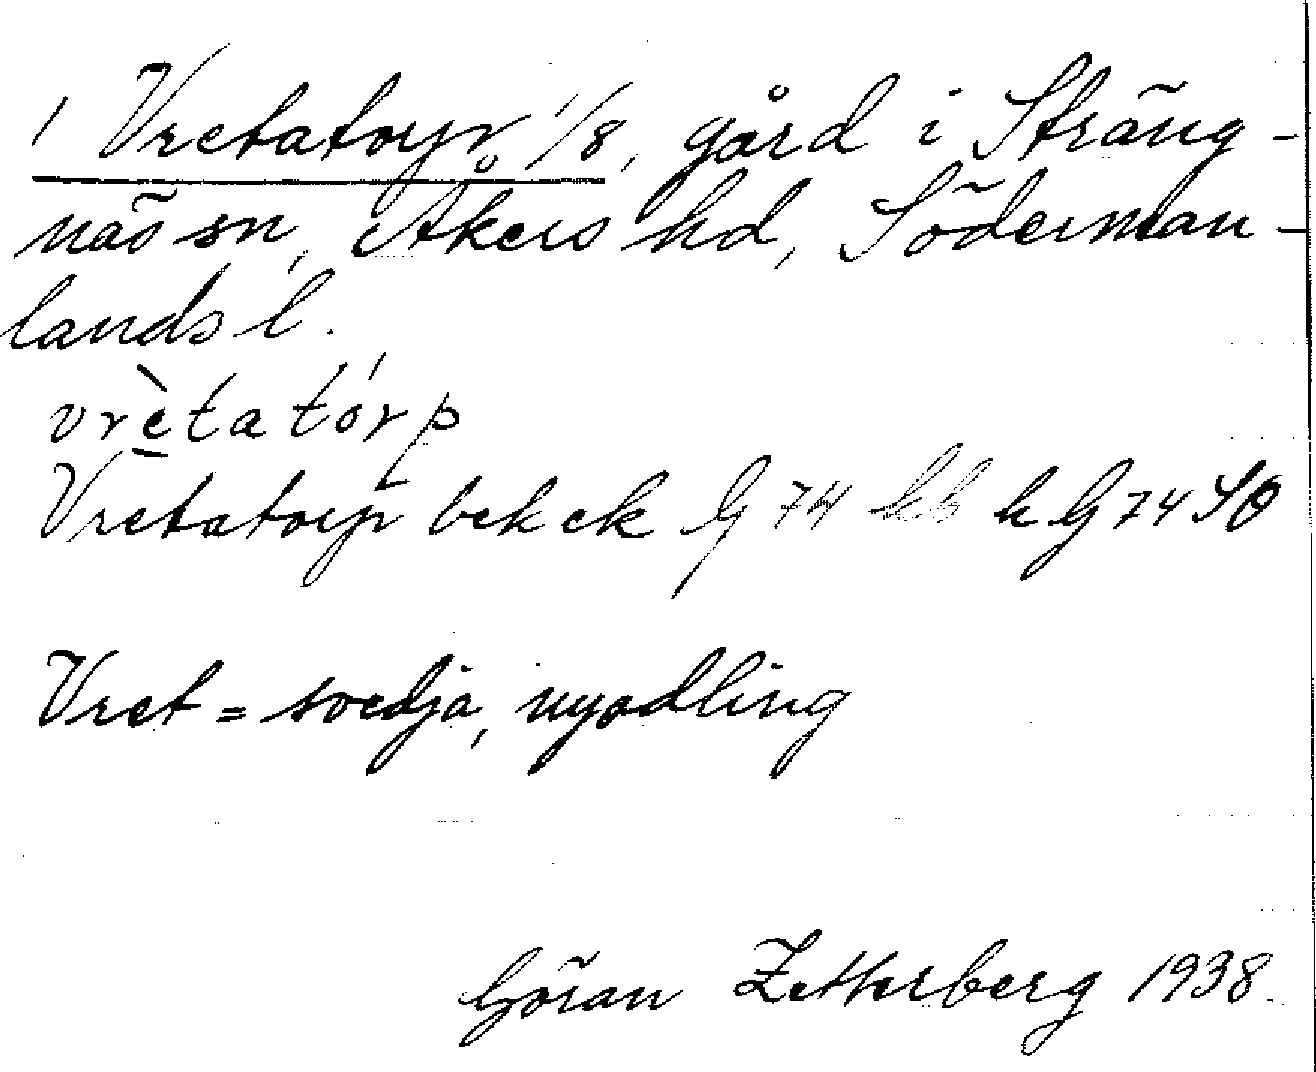 / Vretatorp 1/8, gård i Sträng-
näs sn, Åkers hd, Söderman-
lands l.
vrètatórp
Vretatorp bek ek G 74 h G 74 SO
Vret = svedja, nyodling
Göran Zetterberg 1938.